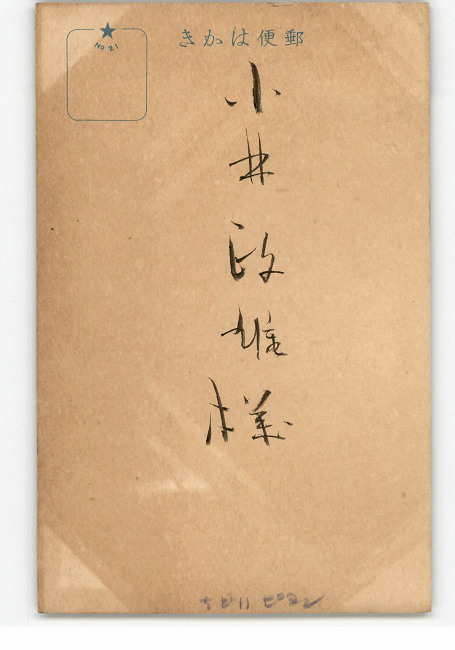 郵便はかき
No 21
小井政雄様